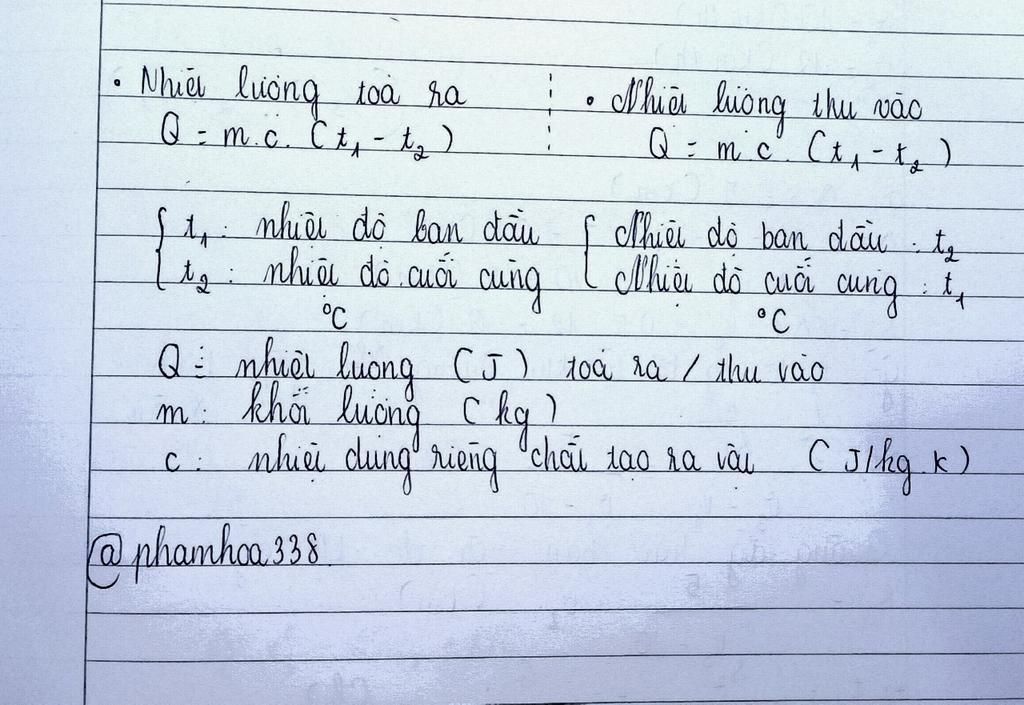 • Nhiệt lượng toả ra • Nhiệt lượng thu vào
Q = m.c.(t₁ - t₂) Q = m c. (t₁ - t₂)
t₁: nhiệt độ ban đầu Nhiệt độ ban đầu: t₂
t₂: nhiệt độ cuối cùng Nhiệt độ cuối cùng: t₁
°C °C
Q: nhiệt lượng (J) toả ra / thu vào
m: khối lượng (kg)
c: nhiệt dung riêng chất tạo ra vật (J/kg.K)
@phamhoa338.